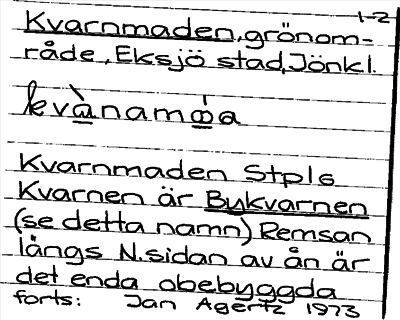 1-2
Kvarnmaden, grönom-
råde, Eksjö stad, Jönkl.
kvànamáa
Kvarnmaden Stpl6
Kvarnen är Bykvarnen
(se detta namn) Remsan
längs N.sidan av ån är
det enda obebyggda
forts: Jan Agertz 1973